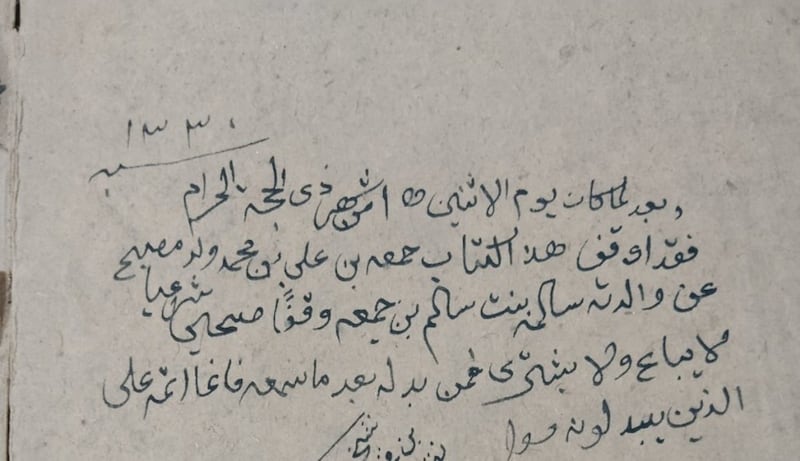 ١٣٣٠
سنة
وبعد لما كان يوم الاثنين ١٥ من شهر ذى الحجة الحرام
فقد اوقف هذا الكتاب جمعه بن علي بن محمد ولد مصبح
عن والدته سالمه بنت سالم بن جمعه وقفًا صحيحا شرعيا
لا يباع ولا يشترى فمن بدله بعد ما سمعه فانما اثمه على
الذين يبدلونه